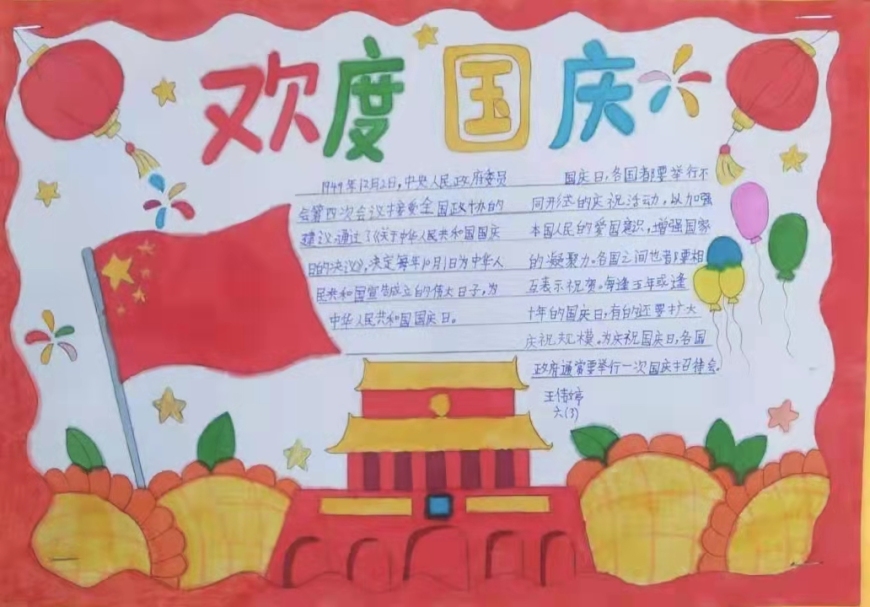 欢度国庆
1949年12月2日,中央人民政府委员
会第四次会议接受全国政协的
建议,通过了《关于中华人民共和国国庆
日的决议》,决定每年10月1日为中华人
民共和国宣告成立的伟大日子,为
中华人民共和国国庆日。
国庆日,各国都要举行不
同形式的庆祝活动,以加强
本国人民的爱国意识,增强国家
的凝聚力。各国之间也都要相
互表示祝贺。每逢五年或逢
十年的国庆日,有的还要扩大
庆祝规模。为庆祝国庆日,各国
政府通常要举行一次国庆招待会。
六(3)